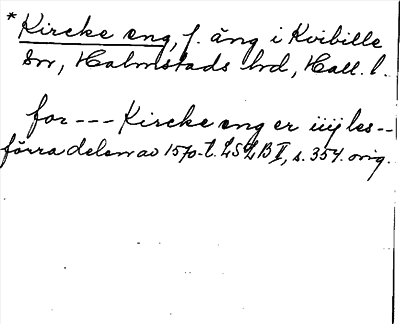 *Kircke eng, f. äng i Kvibille
sn, Halmstads hd, Hall. l.
for --- Kircke eng er iiij les --
förra delen av 1570-t. LSLB I, s. 354. orig.